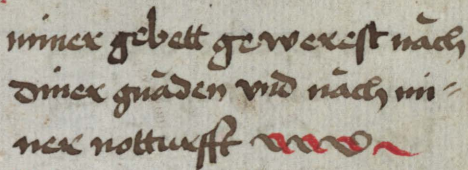 miner gebett gewerest nach
diner gnaden vnd nach mi-
ner notturfft